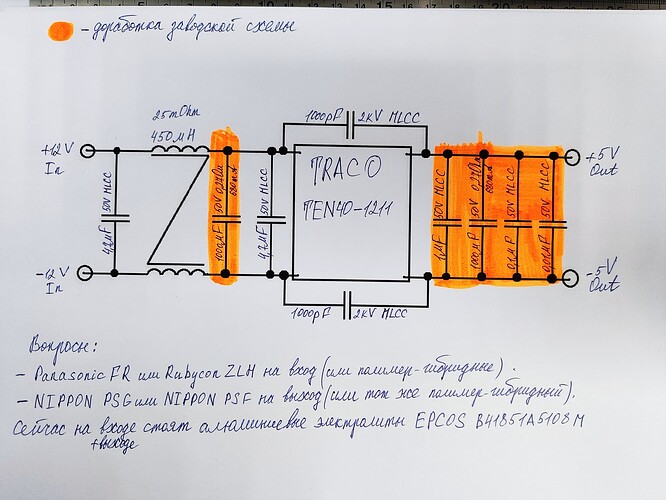 - доработка заводской схемы
25mOhm
450µH
1000pF 2kV MLCC
+12V
In
4,7µF 50V MLCC
1000µF 50V
4,7µF 50V MLCC
TRACO
TEN40-1211
1µF 50V MLCC
1000µF 50V
0,1µF 50V MLCC
0,01µF 50V MLCC
+5V
Out
-12V
In
-5V
Out
1000pF 2kV MLCC
Вопросы:
- Panasonic FR или Rubycon ZLH на вход (или полимер-гибридные).
- NIPPON PSG или NIPPON PSF на выход (или тот же полимер-гибридный).
Сейчас на входе стоят алюминиевые электролиты EPCOS B41851A5108M
+выходе